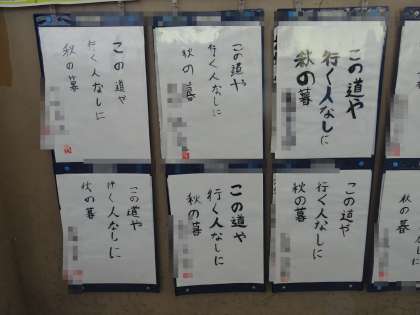 この道や
行く人なしに
秋の暮
この道や
行く人なしに
秋の暮
この道や
行く人なしに
秋の暮
秋の暮
この道や
行く人なしに
秋の暮
この道や
行く人なしに
秋の暮
この道や
行く人なしに
秋の暮